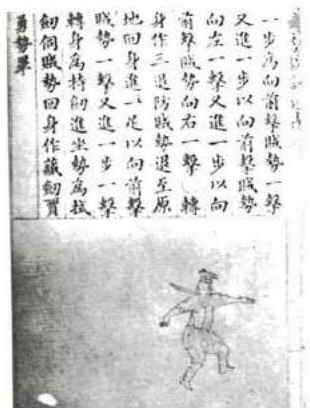 一步爲向前擊賊勢一擊
又進一步以向前擊賊勢
向左一擊又進一步以向
前擊賊勢向右一擊轉
身作三退防賊勢退至原
地回身進一足以向前擊
賊勢一擊又進一步一擊
轉身爲持劍進坐勢爲拭
劍伺賊勢回身作藏劍賈
勇勢畢